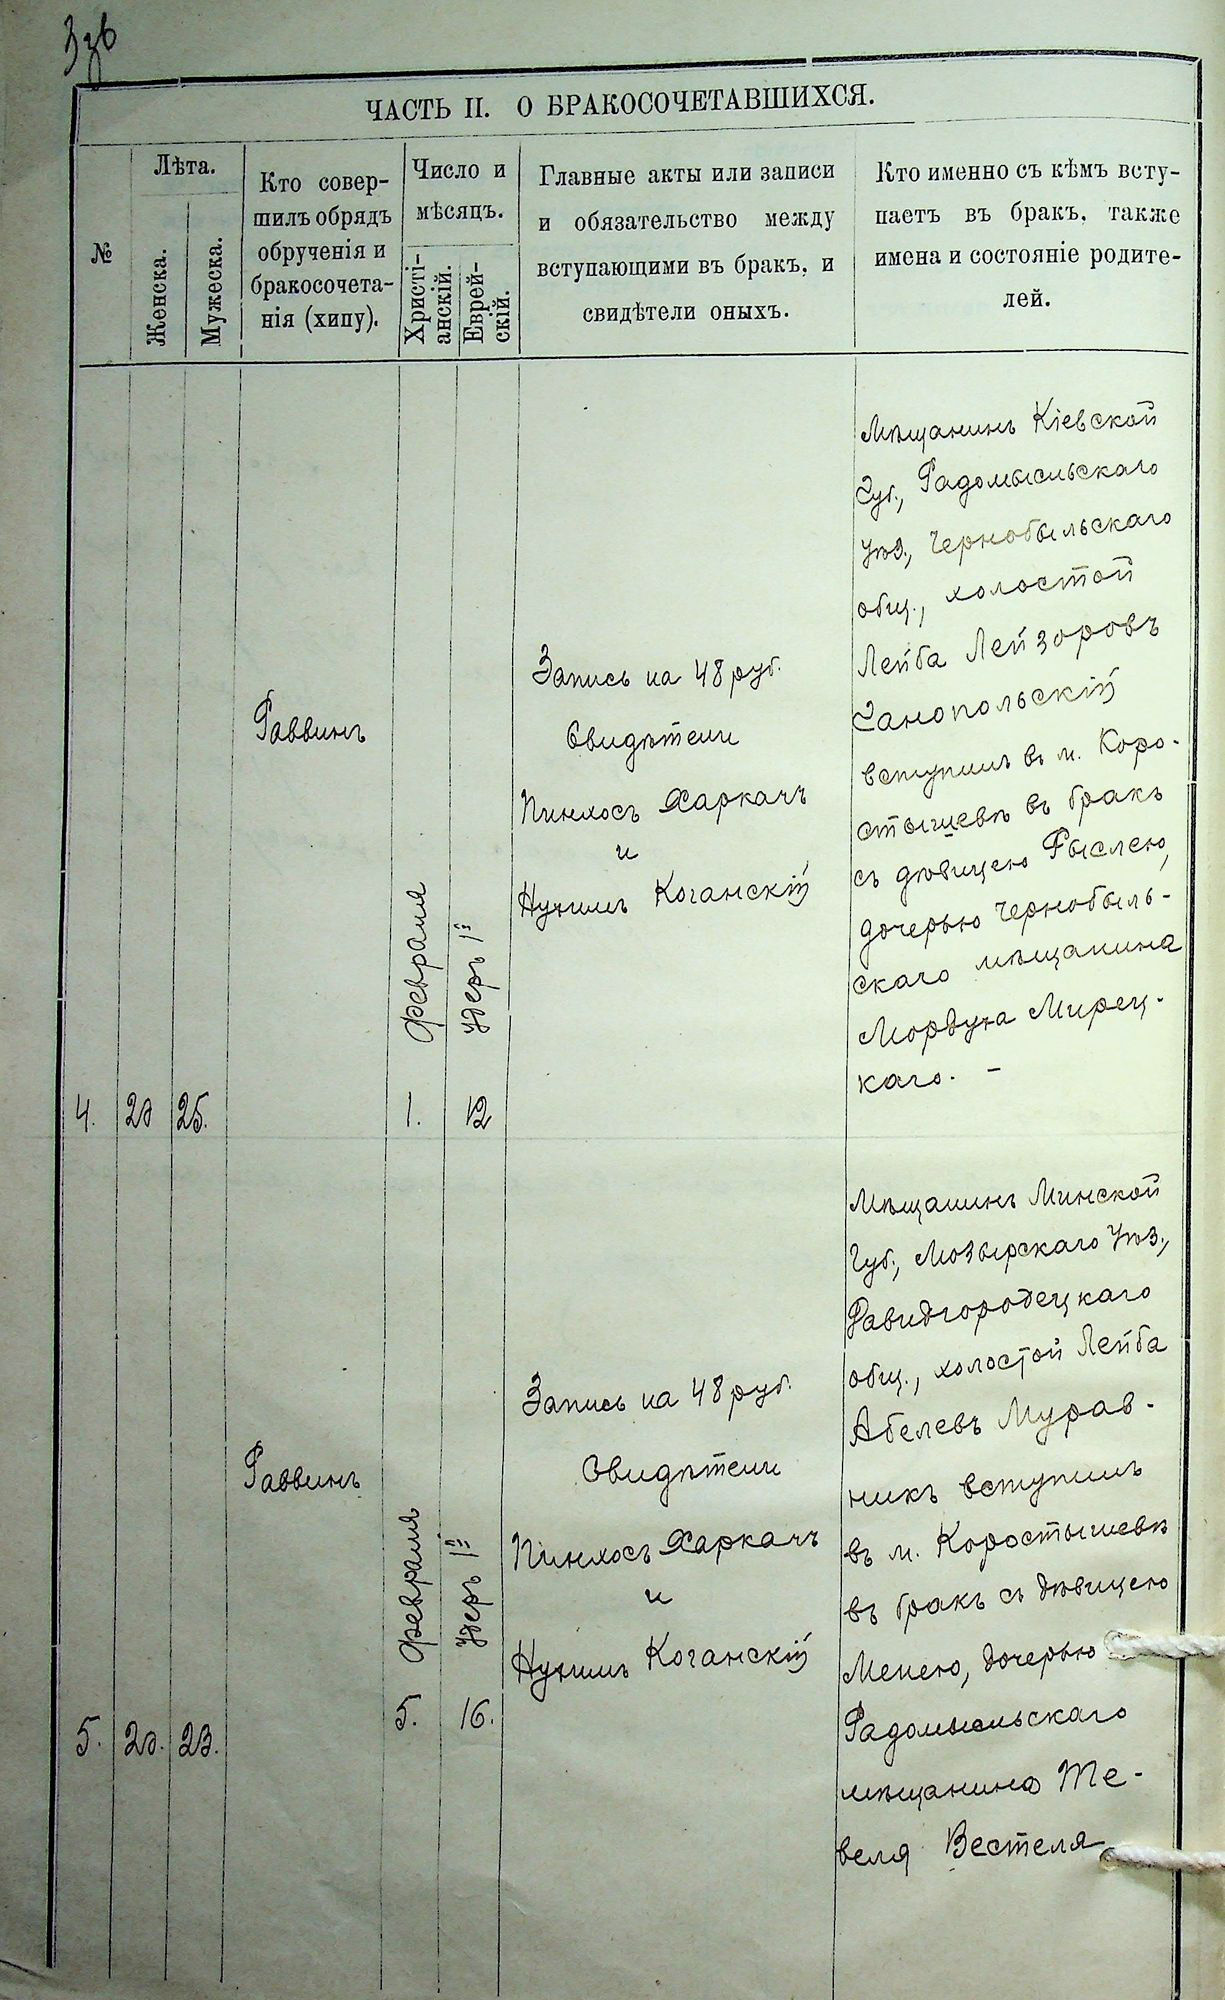 ЧАСТЬ II. О БРАКОСОЧЕТАВШИХСЯ.
№
Лѣта.
Женска.
Мужеска.
Кто совер-
шилъ обрядъ
обрученія и
бракосочета-
нія (хипу).
Число и
мѣсяцъ.
Христі-
анскій.
Еврей-
скій.
Главные акты или записи
и обязательство между
вступающими въ бракъ, и
свидѣтели оныхъ.
Кто именно съ кѣмъ всту-
паетъ въ бракъ, также
имена и состояніе родите-
лей.
4.
20
25.
Раввинъ
Февраля
1.
Удеръ 1й
12
Запись на 48 руб.
Свидѣтели
Пинхосъ Харкачъ
и
Нухимъ Коганскій
Мѣщанинъ Кіевской
Губ., Радомысльскаго
Уѣз., Чернобыльскаго
общ., холостой
Лейба Лейзоровъ
Ганопольскій
вступилъ въ м. Коро-
стышевѣ въ бракъ
съ дѣвицею Рыслею,
дочерью Чернобыль-
скаго мѣщанина
Мордуха Мирец-
каго. –
5.
20.
23.
Раввинъ
Февраля
5.
Удеръ 1й
16.
Запись на 48 руб.
Свидѣтели
Пинхосъ Харкачъ
и
Нухимъ Коганскій
Мѣщанинъ Минской
Губ., Мозырскаго Уѣз.,
Давидгородецкаго
общ., холостой Лейба
Абелевъ Мурав-
никъ вступилъ
въ м. Коростышевѣ
въ бракъ съ дѣвицею
Менею, дочерью
Радомысльскаго
мѣщанина Те-
веля Вестеля